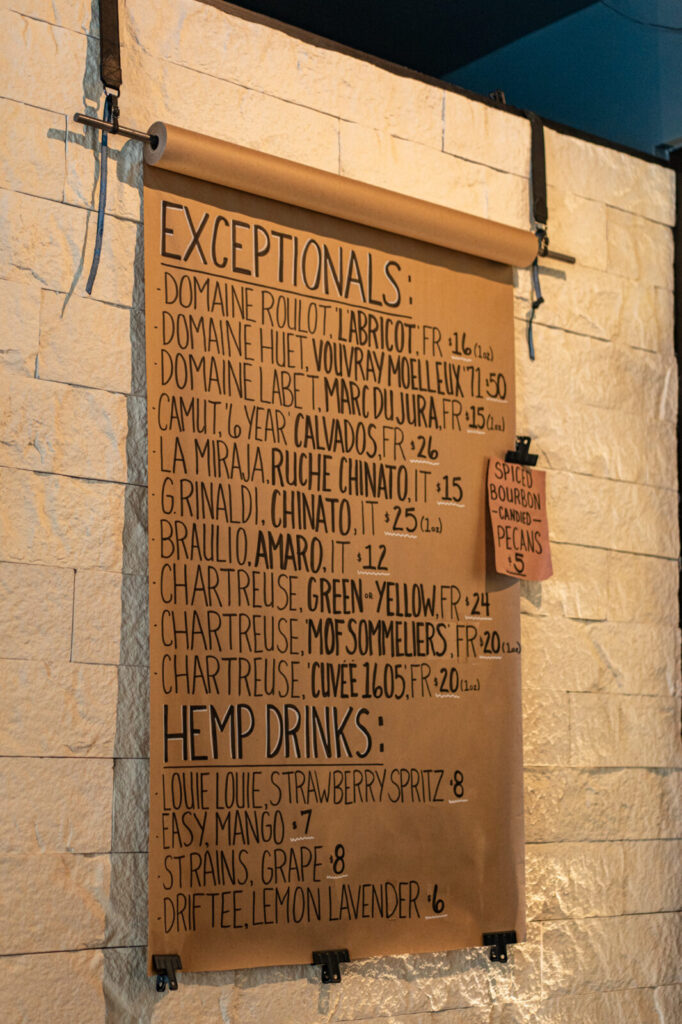 EXCEPTIONALS:
- DOMAINE ROULOT, 'L'ABRICOT', FR $16 (1oz)
- DOMAINE HUET, VOUVRAY MOELLEUX '71 $50
- DOMAINE LABET, MARC DU JURA, FR $15 (1oz)
- CAMUT, '6 YEAR' CALVADOS, FR $26
- LA MIRAJA, RUCHE CHINATO, IT $15
- G.RINALDI, CHINATO, IT $25 (1oz)
- BRAULIO, AMARO, IT $12
- CHARTREUSE, GREEN OR YELLOW, FR $24
- CHARTREUSE, 'MOF SOMMELIERS', FR $20 (1oz)
- CHARTREUSE, 'CUVÉE 1605', FR $20 (1oz)
HEMP DRINKS:
- LOUIE LOUIE, STRAWBERRY SPRITZ $8
- EASY, MANGO $7
- STRAINS, GRAPE $8
- DRIFTEE, LEMON LAVENDER $6
SPICED
BOURBON
- CANDIED -
PECANS
$5